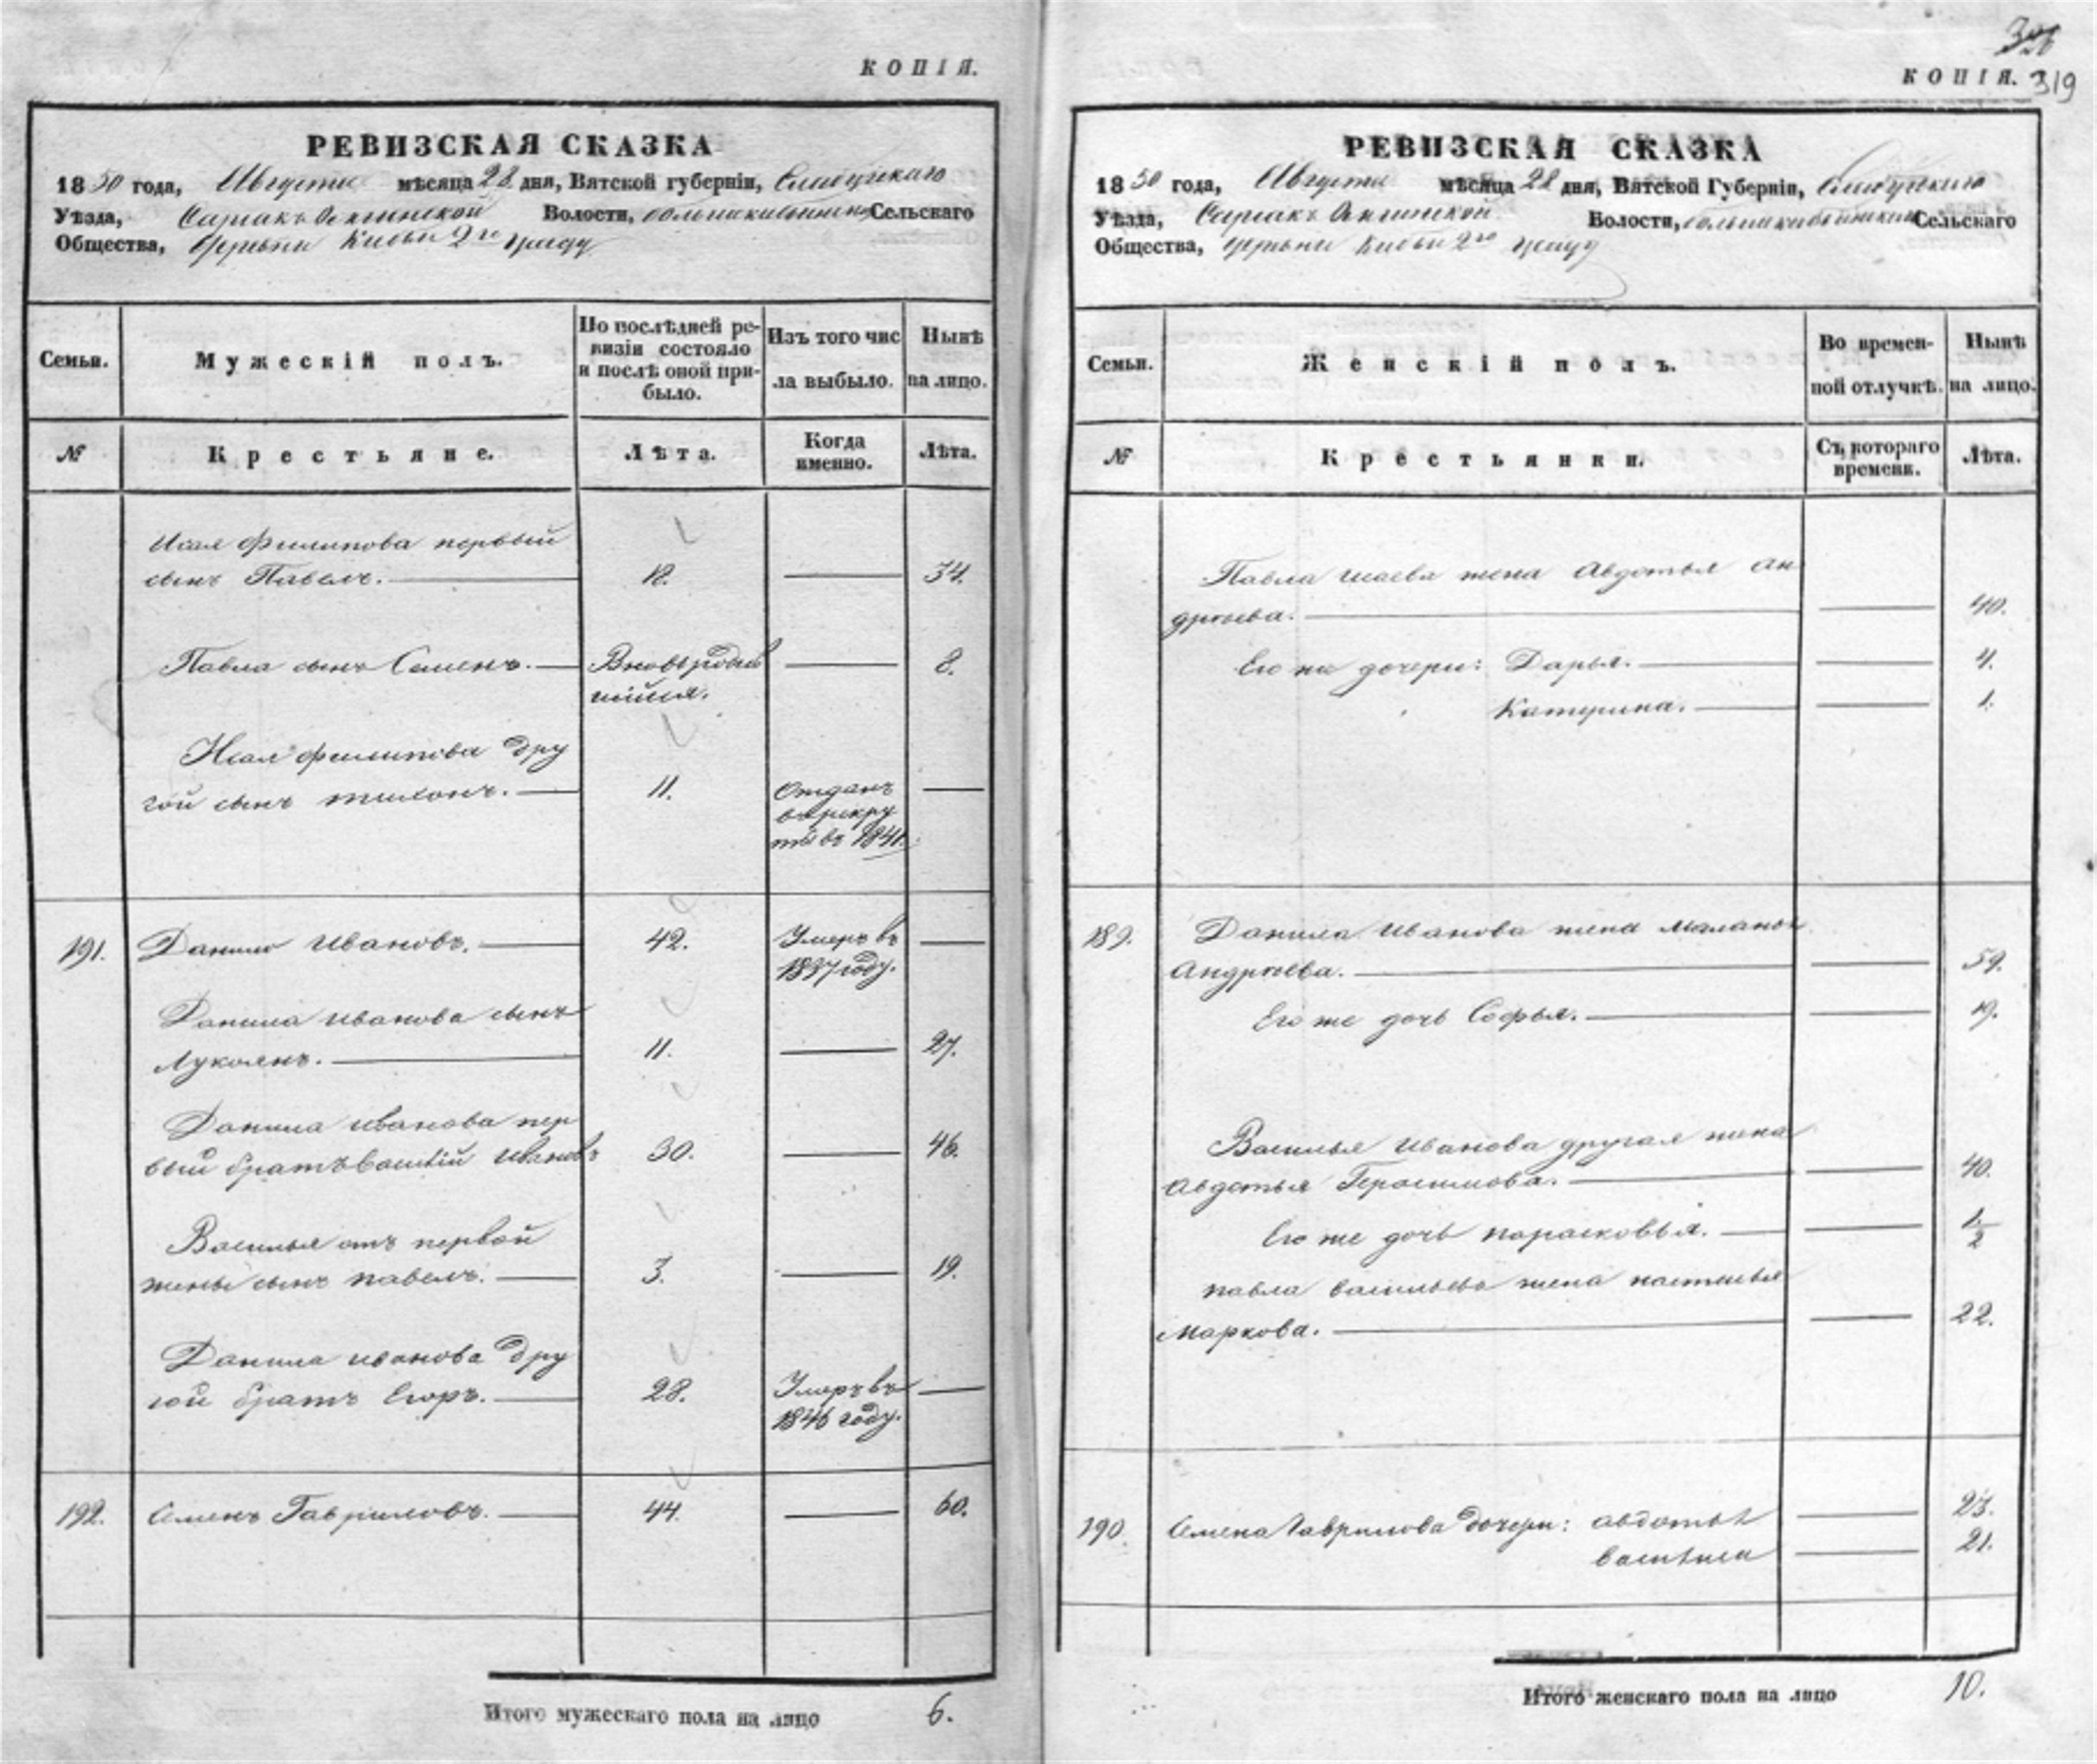 КОПІЯ.
РЕВИЗСКАЯ СКАЗКА
1850 года, Августа мѣсяца 28 дня, Вятской губерніи,
Уѣзда, Волости, Сельскаго
Общества, Кибьи 2го
Семьи.
Мужескій полъ.
По послѣдней ре-
визіи состояло
и послѣ оной при-
было.
Изъ того чис
ла выбыло.
Нынѣ
на лицо.
№
Крестьяне.
Лѣта.
Когда
именно.
Лѣта.
Исая Филипова первый
сынъ Павелъ. 18. 34.
Павла сынъ Семенъ. Вновь родив
шійся. 8.
Исая Филипова дру
гой сынъ тихонъ. 11. Отданъ
въ рекру
ты въ 1841.
191. Данило Ивановъ. 42. Умеръ въ
1837 году.
Данила Иванова сынъ
Лукоянъ. 11. 27.
Данила Иванова пер
вый братъ Василій Ивановъ 30. 46.
Василья отъ первой
жены сынъ павелъ. 3. 19.
Данила иванова дру
гой братъ Егоръ. 28. Умеръ въ
1846 году.
192. Семенъ Гавриловъ. 44. 60.
Итого мужескаго пола на лицо 6.
КОПІЯ. 319
РЕВИЗСКАЯ СКАЗКА
1850 года, Августа мѣсяца 28 дня, Вятской Губерніи,
Уѣзда, Волости, Сельскаго
Общества, Кибьи 2го
Семьи.
Женскій полъ.
Во времен-
ной отлучкѣ.
Нынѣ
на лицо.
№
Крестьянки.
Съ котораго
времени.
Лѣта.
Павла исаева жена Авдотья Ан
дреева. 40.
Его же дочери: Дарья. 4.
Катерина. 1.
189. Данила Иванова жена маланья
Андреева. 59.
Его же дочь Софья. 19.
Василья Иванова другая жена
Авдотья Герасимова. 40.
Его же дочь парасковья. 1/2
павла васильева жена настасья
Маркова. 22.
190. Семена Гаврилова дочери: авдотья 23.
василиса 21.
Итого женскаго пола на лицо 10.